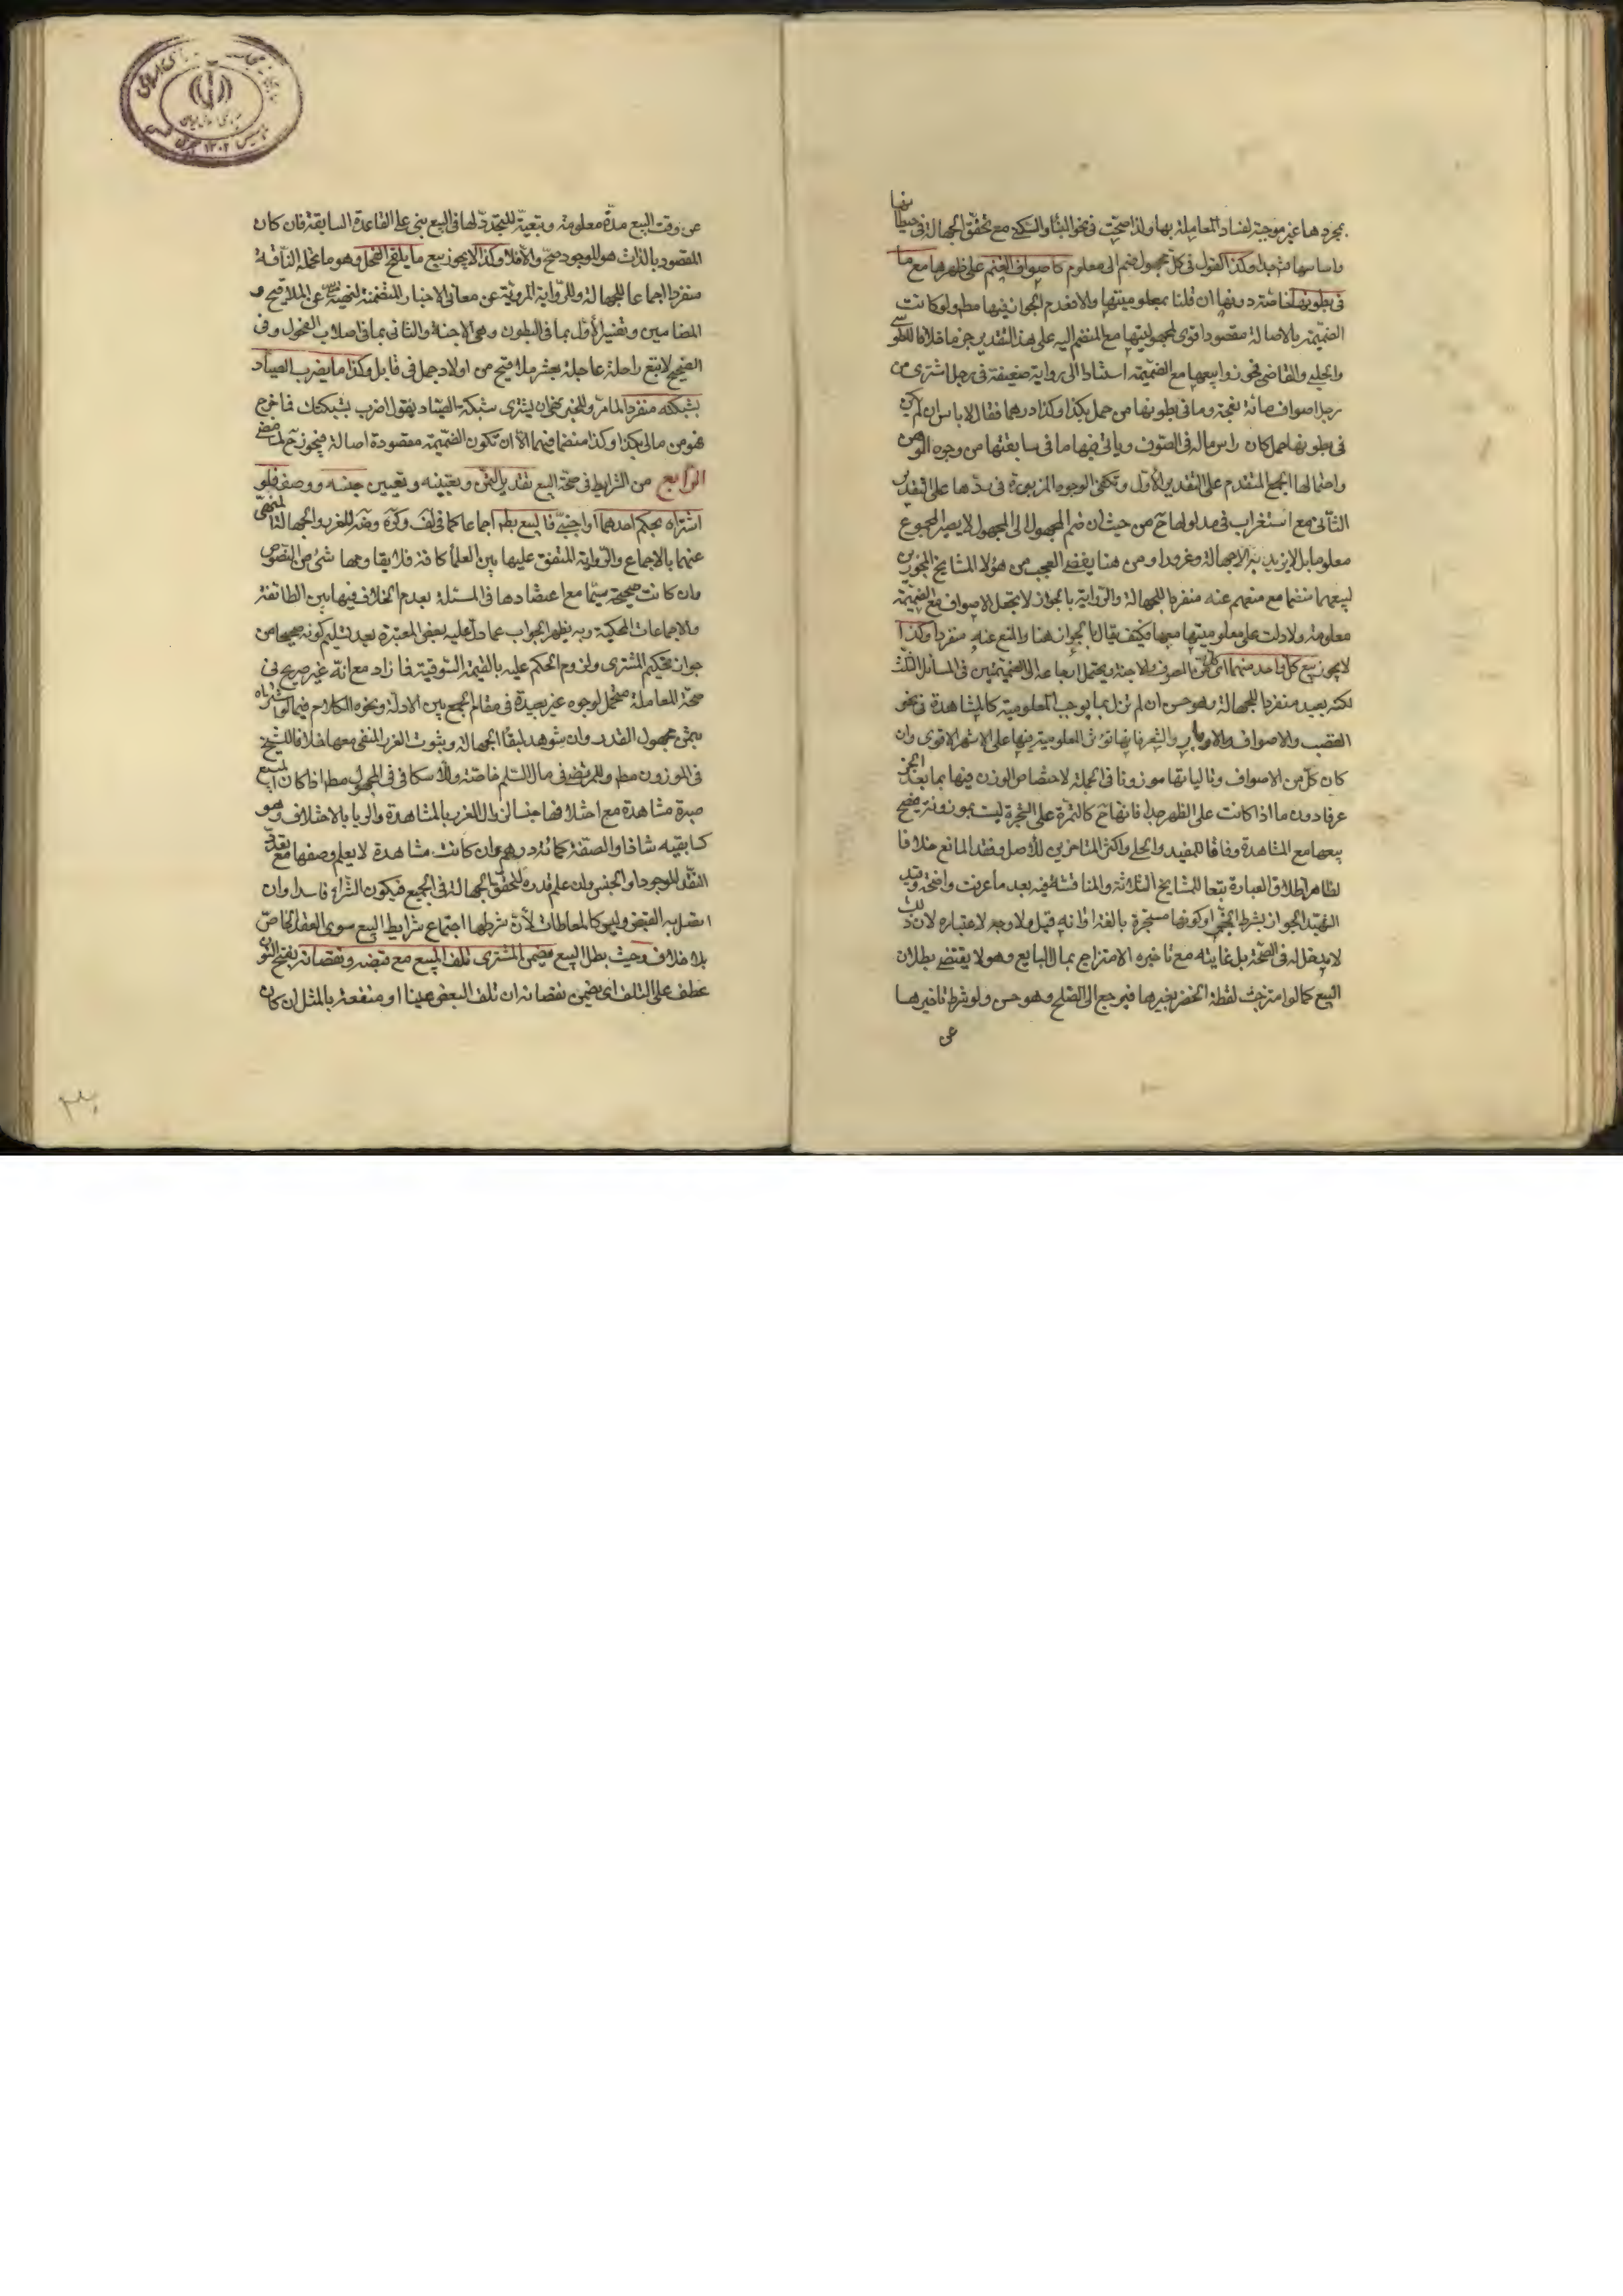 بمجردها غير موجبة لفساد المعاملة بها ولذا صحت في نحو البناء والسكنى مع تحقق الجهالة في حيطانها
واساسها فتوجد وكذا القول في كل مجهول ضم الى معلوم كاصواف الغنم على ظهرها مع ما
في بطونها ان قلنا بمعلوميتها والا فعدم الجواز فيها مط ولو كانت
الضميمة بالاصالة مقصودا قوى لمجهوليتها مع المنضم اليه على هذا التقدير جزما خلافا للطوسي
والحلبي والقاضي فجوزوا بيعها مع الضميمة استنادا الى رواية ضعيفة في رجل اشترى من
رجل اصواف مائة نعجة وما في بطونها من حمل بكذا وكذا درهما فقال لا باس ان لم يكن
في بطونها حمل كان راس ماله في الصوف وياتي فيها ما في سابقتها من وجوه الوهن
واحتمالها الجمع المتقدم على التقدير الاول وتكفى الوجوه المزبورة في ردها على التقدير
الثاني مع استغراب في مدلولها ح من حيث ان ضم المجهول الى المجهول لا يصير المجموع
معلوما بل لا يزيد به الا جهالة وغررا ومن هنا يقضى العجب من هؤلاء المشايخ المجوزين
لبيعهما منضما مع منعهم عنه منفردا للجهالة والرواية بالجواز لا تجعل الاصواف مع الضميمة
معلومة ولا دلت على معلوميتها معها فكيف يقال بالجواز هنا والمنع عنه منفردا وكذا
لا يجوز بيع كل واحد منهما اى كل من الصوف والاجنة ويحتمل ارجاعه الى الضميمتين في المسائل الثلث
لكنه بعيد منفردا للجهالة وهو حسن ان لم تزل بما يوجب المعلومية كالمشاهدة في نحو
القصب والاصواف والاوبار والشعر فانها تورث المعلومية فيها على الاشهر الاقوى وان
كان كل من الاصواف وتالياتها موزونا في الجملة لاختصاص الوزن فيها بما بعد الجز
عرفا دون ما اذا كانت على الظهر جدا فانها ح كالثمرة على الشجرة ليست بموزونة فيصح
بيعها مع المشاهدة وفاقا للمفيد والحلي واكثر المتاخرين للاصل وفقد المانع خلافا
لظاهر اطلاق العبارة تبعا للمشايخ الثلاثة والمناقشة فيه بعد ما عرفت واضحة وقيد
الشهيد الجواز بشرط الجز او كونها مستجزة بالغة اوانه قيل ولا وجه لاعتباره لان ذلك
لا مدخل له في الصحة بل غايته مع تاخيره الامتزاج بمال البايع وهو لا يقتضى بطلان
البيع كما لو امتزجت لقطة الخضر بغيرها فيرجع الى الصلح وهو حسن ولو شرط تاخيرها
عن
عن وقت البيع مدة معلومة وتبعية المتجدد لها في البيع بنى على القاعدة السابقة فان كان
المقصود بالذات هو الموجود صح والا فلا وكذا لا يجوز بيع ما يلقح الفحل وهو ما تحمله الناقة
منفردا اجماعا للجهالة وللرواية المروية عن معاني الاخبار المتضمنة لنهيه عن الملاقيح و
المضامين وتفسير الاول بما في البطون وهي الاجنة والثاني بما في اصلاب الفحول وفي
الصحيح لا تبع راحلة عاجلة بعشر ملاقيح من اولاد جمل في قابل وكذا ما يضرب الصياد
بشبكته منفردا لما مر وللخبر نهى ان يشترى شبكة الصياد يقول اضرب بشبكتك فما خرج
فهو من مالي بكذا وكذا منضما فيهما الا ان تكون الضميمة مقصودة اصالة فيجوز ح لما مضى
الرابع من الشرايط في صحة البيع تقدير الثمن وتعيينه وتعيين جنسه ووصفه فلو
اشتراه بحكم احدهما او اجنبي فالبيع بط اجماعا كما في لف وكرة وضه للغرر والجهالة المنهى
عنهما بالاجماع والرواية المتفق عليها بين العلماء كافة فلا يقاومها شئ من النصوص
وان كانت صحيحة سيما مع اعتضادها في المسئلة بعدم الخلاف فيها بين الطائفة
والاجماعات المحكية وبه يظهر الجواب عما دل عليه بعض المعتبرة بعد تسليم كونه صحيحا من
جواز تحكيم المشترى ولزوم الحكم عليه بالقيمة السوقية فما زاد مع انه غير صريح في
صحة المعاملة محتمل لوجوه غير بعيدة في مقام الجمع بين الادلة ونحوه الكلام فيما لو اشتراه
بثمن مجهول القدر وان شوهد لبقاء الجهالة وثبوت الغرر المنفى معها خلافا للشيخ
في الموزون مط وللمرتضى في مال السلم خاصة وللاسكافي في المجهول مط اذا كان المبيع
صبرة مشاهدة مع اختلافهما جنسا لزوال الغرر بالمشاهدة والربا بالاختلاف وهو
كسابقيه شاذ او الصفة كمائة درهم وان كانت مشاهدة لا يعلم وصفها مع تعدد
النقد الموجود او الجنس وان علم قدره لتحقق الجهالة في الجميع فيكون الشراء فاسدا وان
اتصل به القبض وليس كالمعاطات لان شرطها اجتماع شرايط البيع سوى العقد الخاص
بلا خلاف وحيث بطل البيع فيضمن المشترى تلف المبيع مع قبضه ونقصانه بفتح النون
عطف على التلف اى يضمن نقصانه ان تلف البعض عينا او منفعة بالمثل ان كان